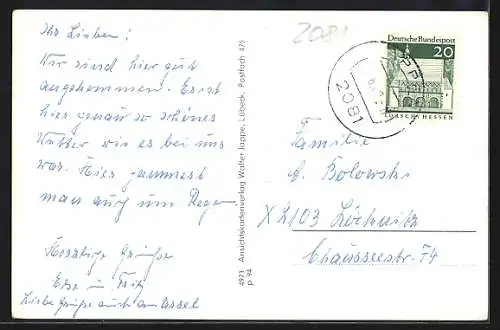 Ihr Lieben!
Wir sind hier gut
angekommen. Es ist
hier genau so schönes
Wetter wie es bei uns
war. Hier jammert
man auch um Regen
Herzliche Grüße
u. Fritz
Liebe Grüße auch an
4973 Ansichtskartenverlag Walter Joppe, Lübeck, Postfach 475
p 94
2081
Deutsche Bundespost
20
LORSCH/HESSEN
2081
Familie
A. Bolowski
X 2103 Löcknitz
Chausseestr. 74